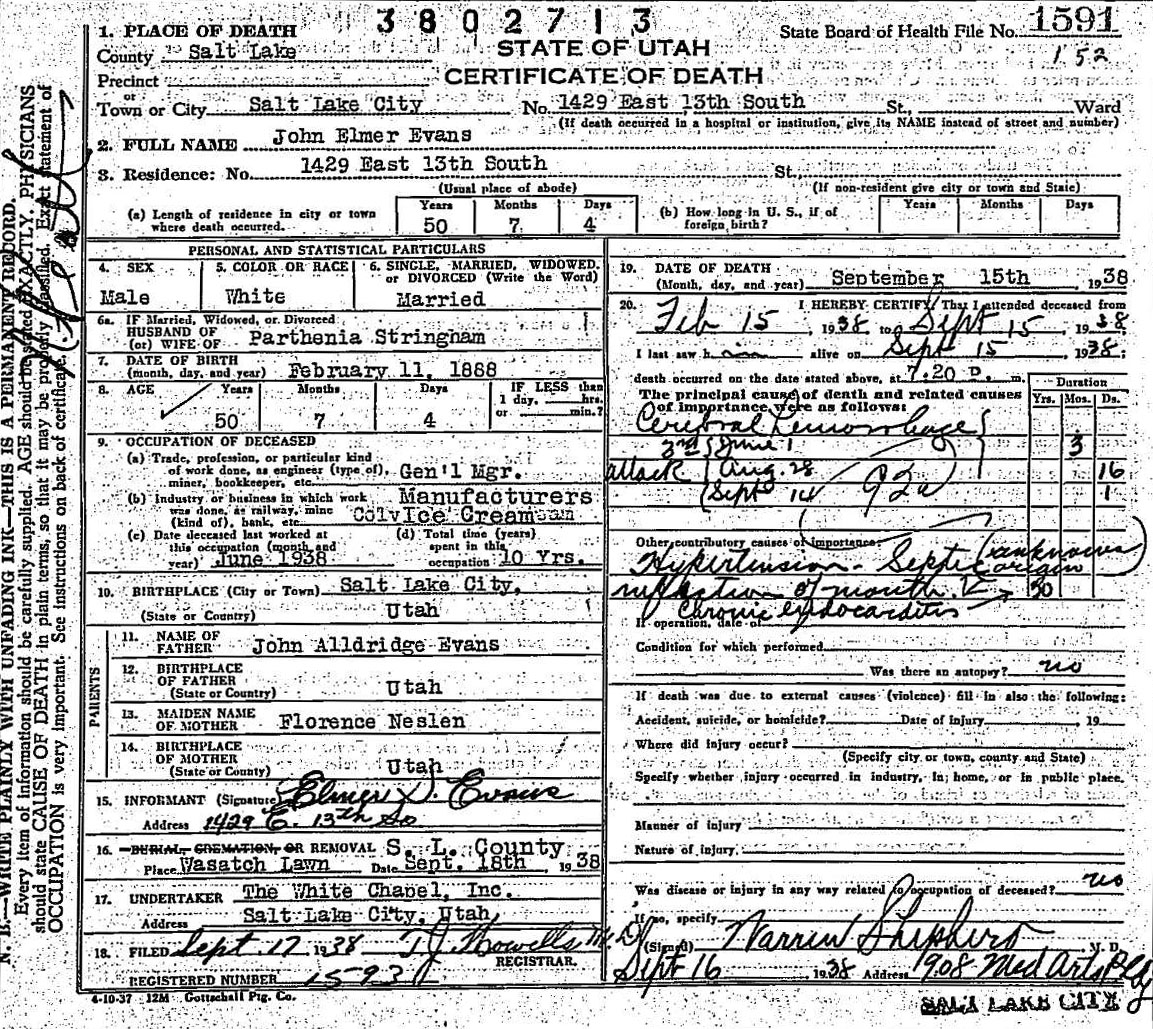 3802713
1. PLACE OF DEATH
County Salt Lake
STATE OF UTAH
State Board of Health File No. 1591
152
Precinct
CERTIFICATE OF DEATH
or
Town or City Salt Lake City No. 1429 East 13th South St., Ward
(If death occurred in a hospital or institution, give its NAME instead of street and number)
2. FULL NAME John Elmer Evans
3. Residence: No. 1429 East 13th South St.
(Usual place of abode) (If non-resident give city or town and State)
(a) Length of residence in city or town where death occurred. Years 50 Months 7 Days 4
(b) How long in U. S., if of foreign birth? Years Months Days
PERSONAL AND STATISTICAL PARTICULARS
4. SEX Male
5. COLOR OR RACE White
6. SINGLE, MARRIED, WIDOWED, OR DIVORCED (Write the Word) Married
6a. IF Married, Widowed, or Divorced
HUSBAND OF
(or) WIFE OF Parthenia Stringham
7. DATE OF BIRTH
(month, day, and year) February 11, 1888
8. AGE Years 50 Months 7 Days 4
IF LESS than 1 day, hrs. or min.?
9. OCCUPATION OF DECEASED
(a) Trade, profession, or particular kind of work done, as engineer (type of), miner, bookkeeper, etc. Gen'l Mgr.
(b) Industry or business in which work was done, as railway, mine (kind of), bank, etc. Manufacturers
Colv Ice Cream
(c) Date deceased last worked at this occupation (month and year) June 1938
(d) Total time (years) spent in this occupation 10 Yrs.
10. BIRTHPLACE (City or Town) Salt Lake City,
(State or Country) Utah
PARENTS
11. NAME OF FATHER John Alldridge Evans
12. BIRTHPLACE OF FATHER (State or Country) Utah
13. MAIDEN NAME OF MOTHER Florence Neslen
14. BIRTHPLACE OF MOTHER (State or Country) Utah
15. INFORMANT (Signature) Elmer S. Evans
Address 1429 E. 13th So
16. BURIAL, CREMATION, OR REMOVAL S. L. County
Place Wasatch Lawn Date Sept. 18th 1938
17. UNDERTAKER The White Chapel, Inc.
Address Salt Lake City, Utah,
18. FILED Sept 17 1938 T J Howells M D
REGISTRAR.
REGISTERED NUMBER 1593
4-10-37 12M Gottschall Ptg. Co.
19. DATE OF DEATH
(Month, day, and year) September 15th, 1938
20. I HEREBY CERTIFY That I attended deceased from
Feb 15, 1938 to Sept 15, 1938
I last saw him alive on Sept 15, 1938;
death occurred on the date stated above, at 7:20 P. m.
The principal cause of death and related causes of importance were as follows:
Duration
Yrs. Mos. Ds.
Cerebral Hemorrhage
3rd June 1 3
attack Aug. 28 16
Sept 14 1
92a
Other contributory causes of importance:
Hypertension - Septic (unknown origin)
infection of mouth 30
Chronic endocarditis
If operation, date of
Condition for which performed
Was there an autopsy? no
If death was due to external causes (violence) fill in also the following:
Accident, suicide, or homicide? Date of injury, 19
Where did injury occur?
(Specify city or town, county and State)
Specify whether injury occurred in industry, in home, or in public place.
Manner of injury
Nature of injury
Was disease or injury in any way related to occupation of deceased? no
If so, specify
(Signed) Warren Shepherd, M. D.
Sept 16 1938 Address 1908 Med Arts Bldg
SALT LAKE CITY
N. B.—WRITE PLAINLY WITH UNFADING INK—THIS IS A PERMANENT RECORD.
Every item of information should be carefully supplied. AGE should be stated EXACTLY. PHYSICIANS
should state CAUSE OF DEATH in plain terms, so that it may be properly classified. Exact statement of
OCCUPATION is very important. See instructions on back of certificate.